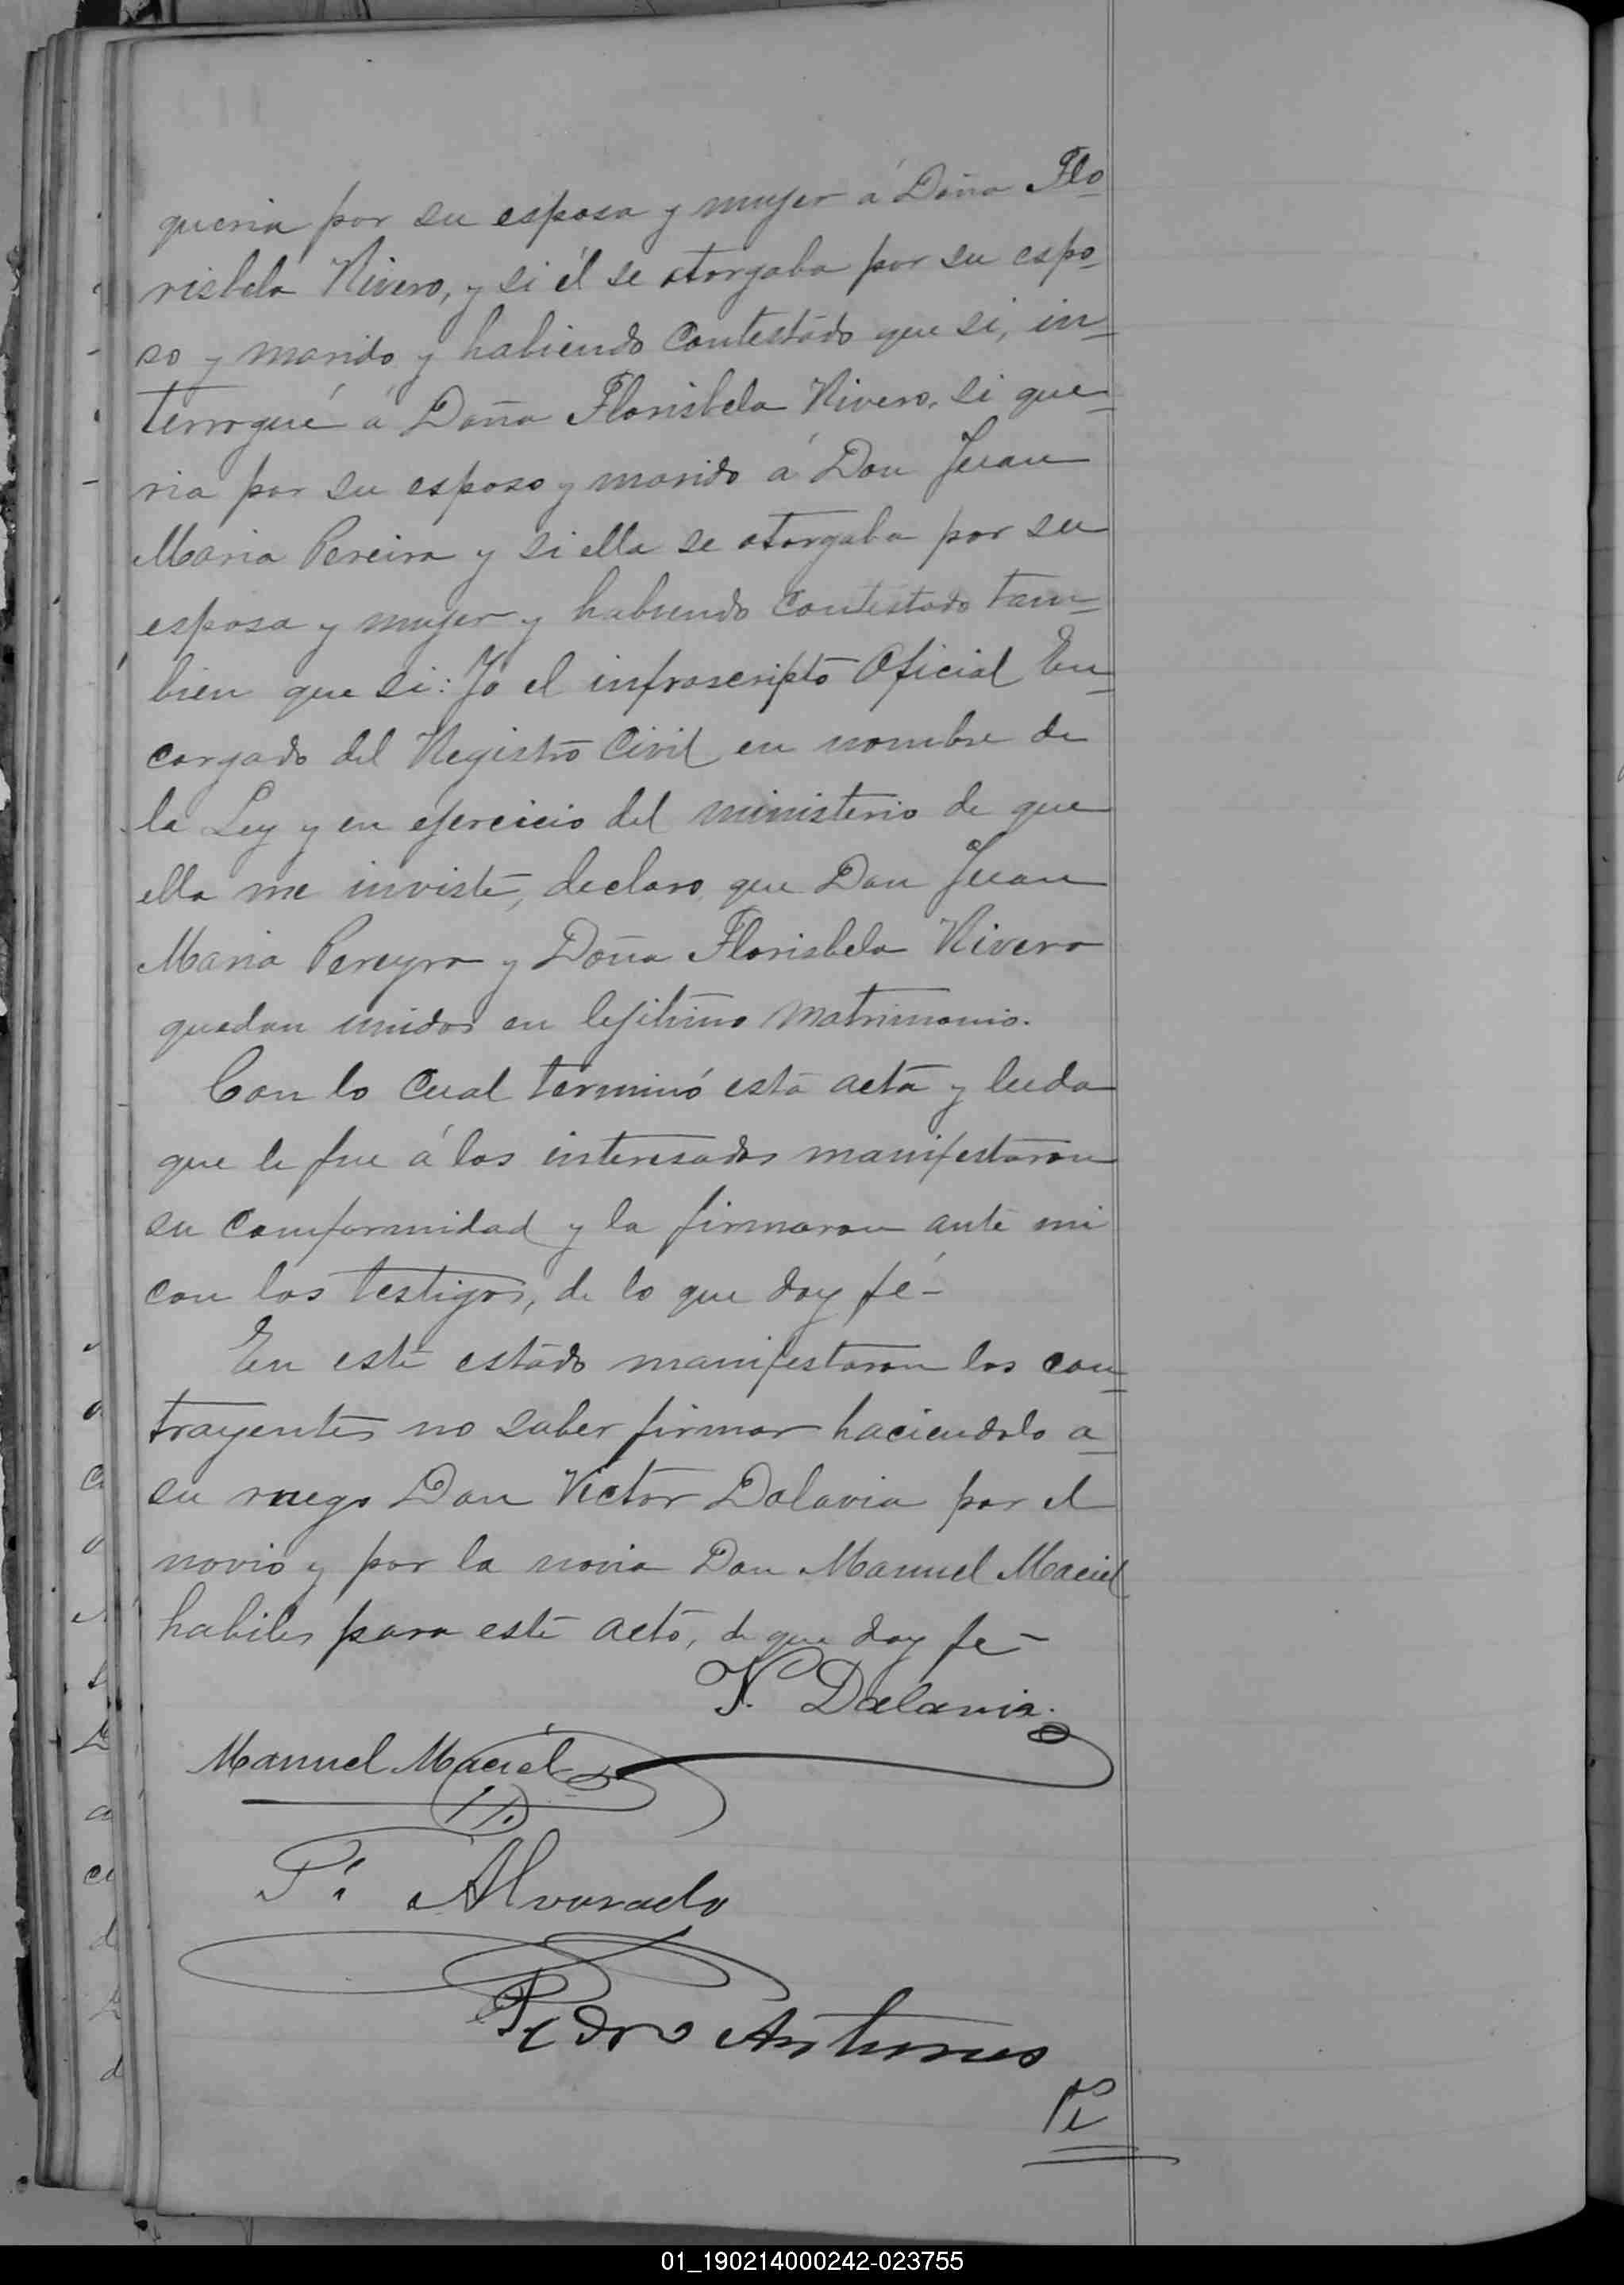 queria por su esposa y mujer á Doña Flo-
risbela Rivero, y si él se otorgaba por su espo-
so y marido y habiendo contestado que si, in-
terrogué á Doña Florisbela Rivero, si que-
ria por su esposo y marido á Don Juan
Maria Pereira y si ella se otorgaba por su
esposa y mujer y habiendo contestado tam-
bien que si: Yo el infrascripto Oficial En-
cargado del Registro Civil en nombre de
la Ley y en ejercicio del ministerio de que
ella me inviste, declaro que Don Juan
Maria Pereyra y Doña Florisbela Rivero
quedan unidos en lejitimo matrimonio.
Con lo cual terminó esta acta y leida
que le fue á los interesados manifestaron
su conformidad y la firmaron ante mi
con los testigos, de lo que doy fé-
En este estado manifestaron los con-
trayentes no saber firmar haciendolo a
su ruego Don Victor Dalavia por el
novio y por la novia Don Manuel Maciel
habiles para este acto, de que doy fe-
V. Dalavia.
Manuel Maciel
Alvarado
Pedro Antunes